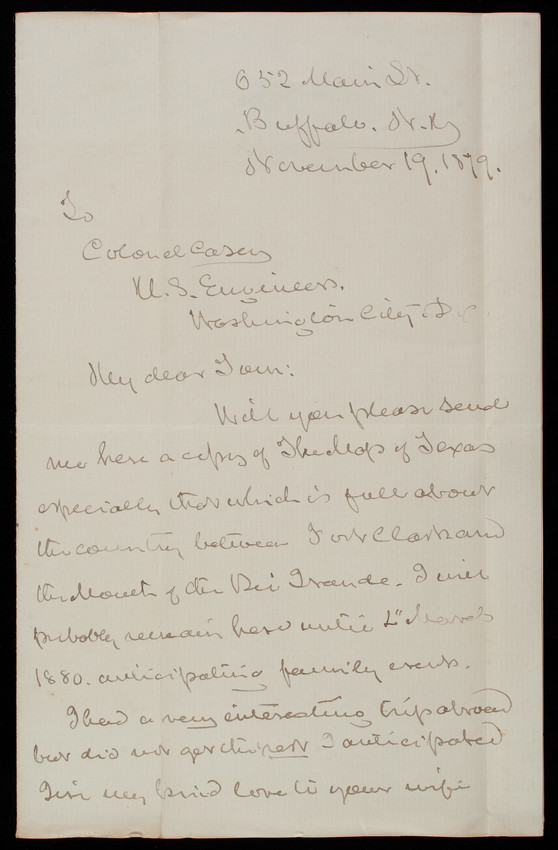 652 Main St.
Buffalo. N.Y
November 19. 1879.
To
Colonel Casey
U.S. Engineers.
Washington City D.C.
My dear Tom:
Will you please send
me here a copy of The Map of Texas
especially that which is full about
the country between Fort Clark and
the Mouth of the Rio Grande. I will
probably remain here until March
1880. anticipating family events.
I had a very interesting trip abroad
but did not get the rest I anticipated
Give my kind love to your wife